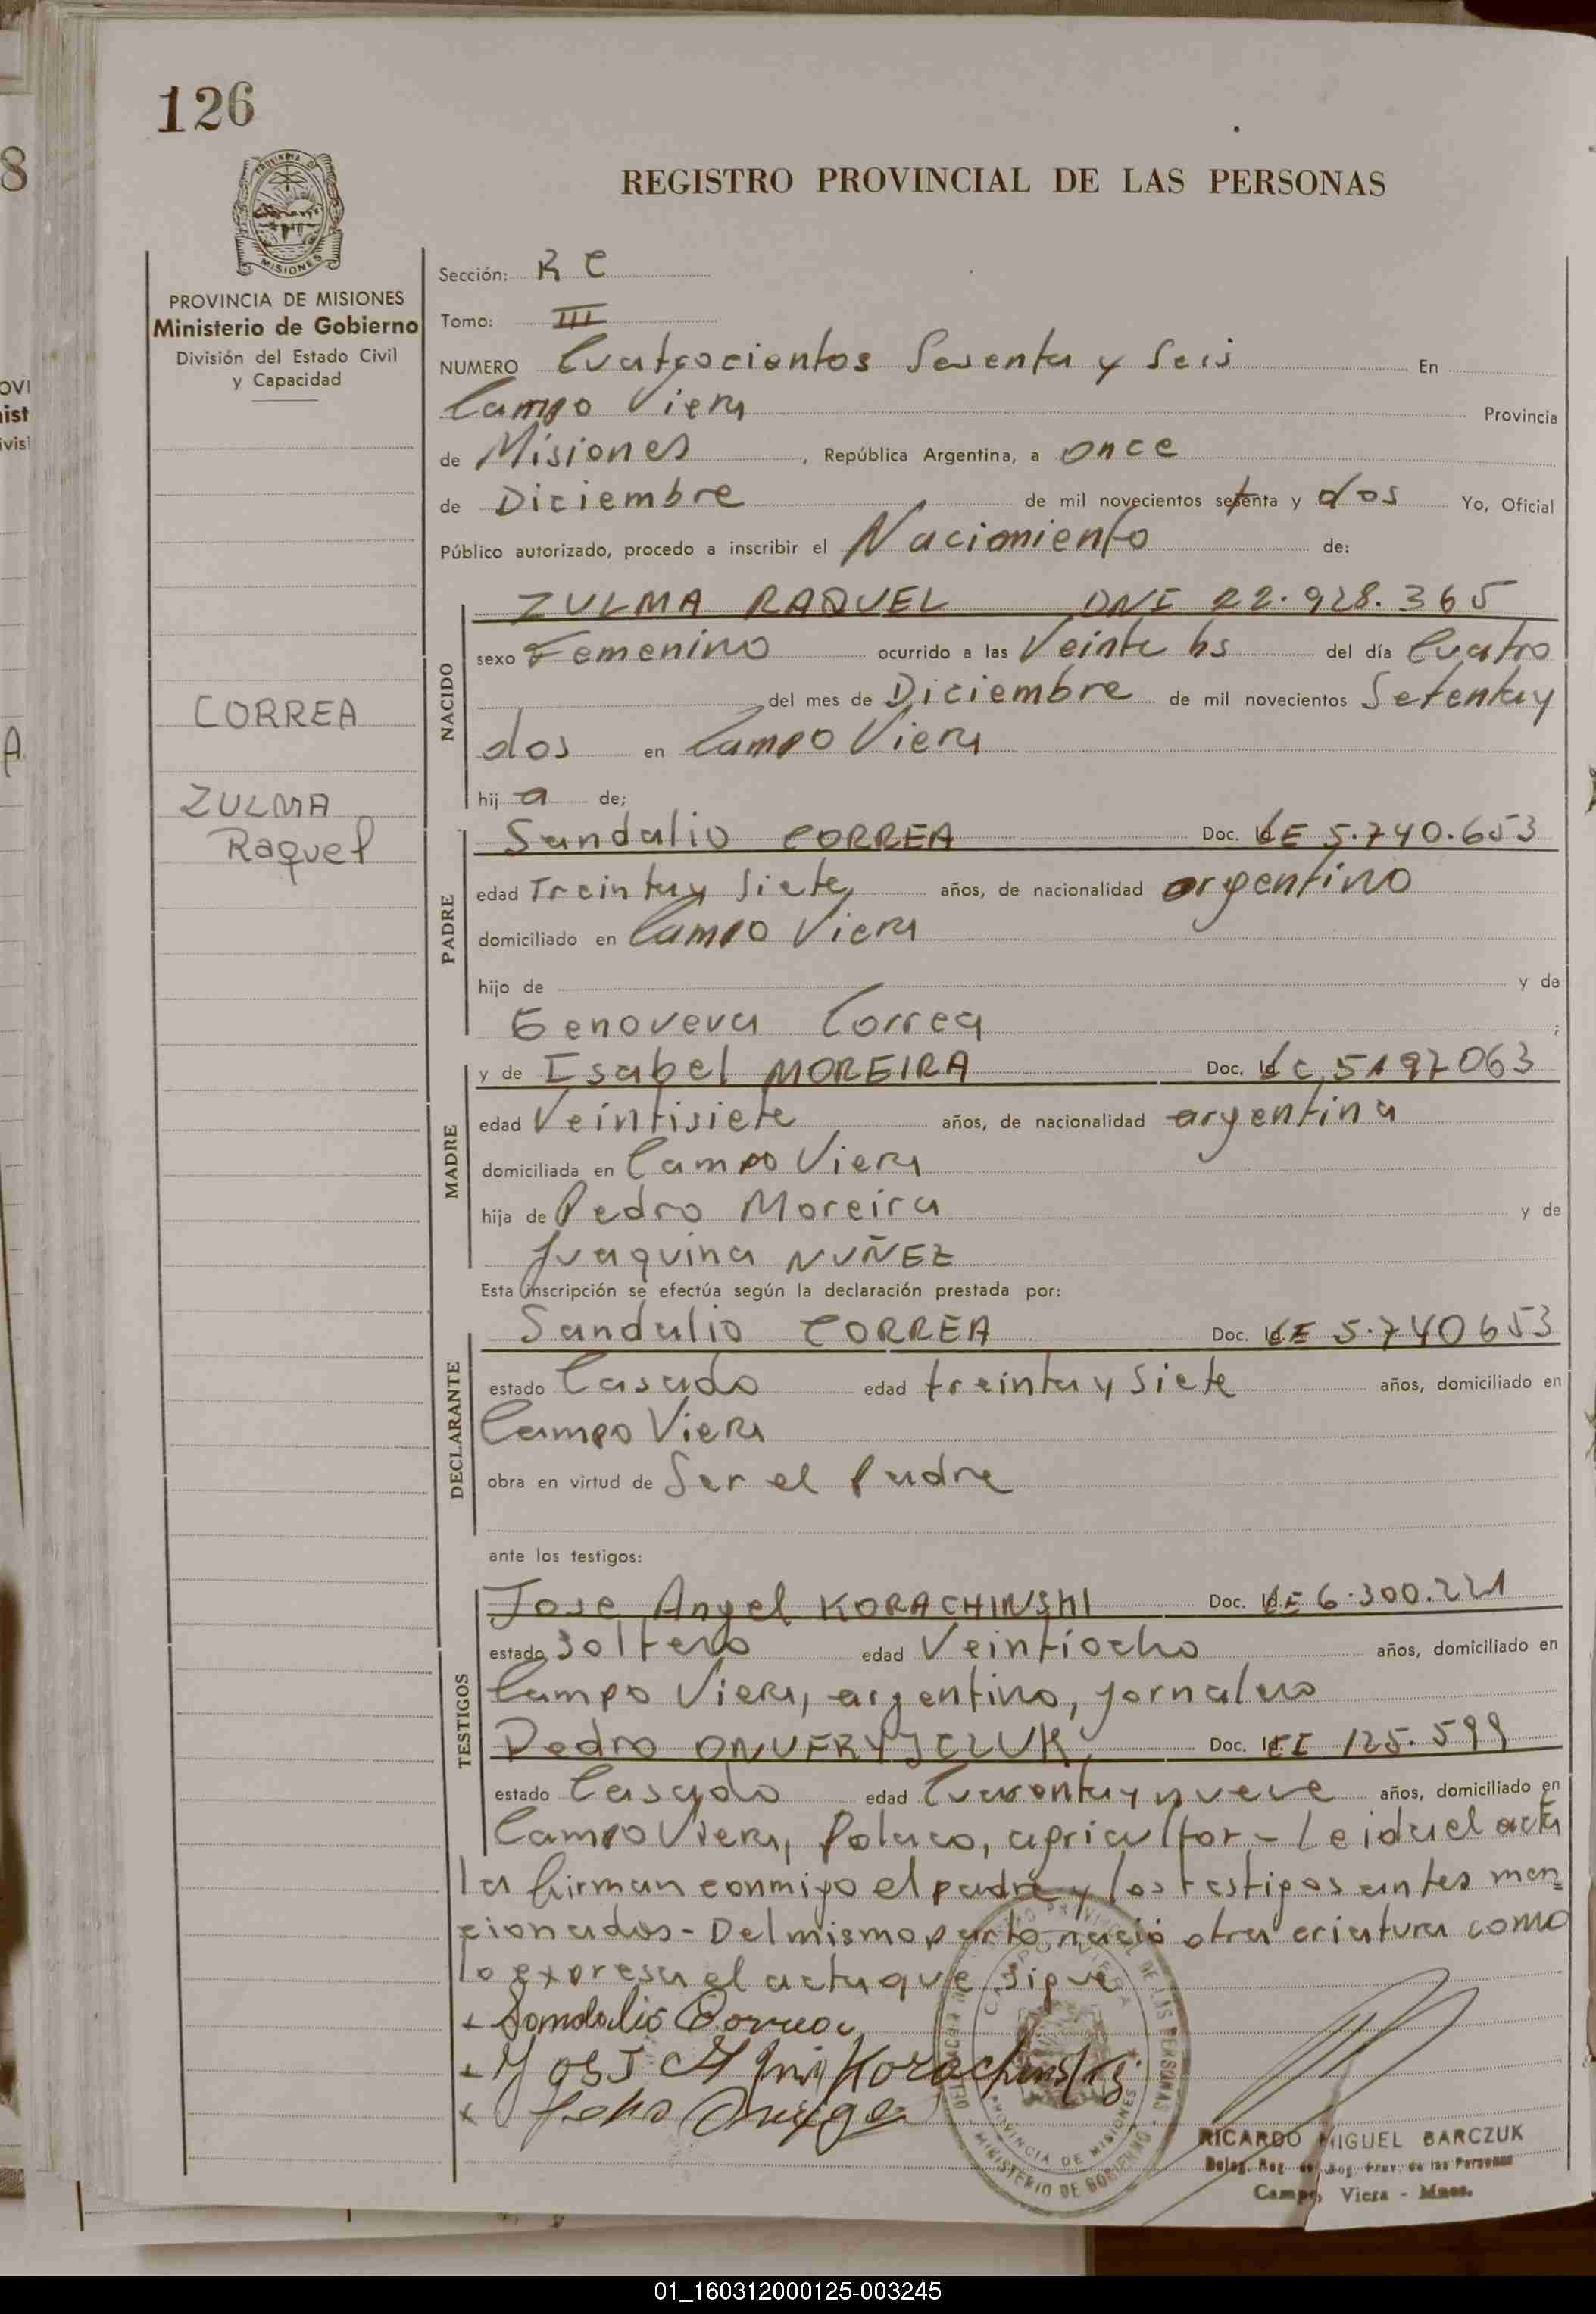 126
PROVINCIA DE MISIONES
Ministerio de Gobierno
División del Estado Civil
y Capacidad
CORREA
ZULMA
Raquel
REGISTRO PROVINCIAL DE LAS PERSONAS
Sección: R C
Tomo: III
NUMERO Cuatrocientos Sesenta y Seis En
Campo Viera Provincia
de Misiones, República Argentina, a once
de Diciembre de mil novecientos setenta y dos Yo, Oficial
Público autorizado, procedo a inscribir el Nacimiento de:
NACIDO
ZULMA RAQUEL DNI 22.928.365
sexo Femenino ocurrido a las Veinte hs del día Cuatro
del mes de Diciembre de mil novecientos Setenta y
dos en Campo Viera
hij a de;
PADRE
Sandalio CORREA Doc. Id LE 5.740.653
edad Treinta y Siete años, de nacionalidad argentino
domiciliado en Campo Viera
hijo de y de
Genoveva Correa ;
MADRE
y de Isabel MOREIRA Doc. Id LC 5197063
edad Veintisiete años, de nacionalidad argentina
domiciliada en Campo Viera
hija de Pedro Moreira y de
Juaquina NUÑEZ
Esta inscripción se efectúa según la declaración prestada por:
DECLARANTE
Sandalio CORREA Doc. Id LE 5.740653
estado Casado edad treinta y Siete años, domiciliado en
Campo Viera
obra en virtud de Ser el Padre
ante los testigos:
TESTIGOS
Jose Angel KORACHINSKI Doc. Id. LE 6.300.221
estado Soltero edad Veintiocho años, domiciliado en
Campo Viera, argentino, jornalero
Pedro Doc. Id. CI 125.599
estado Casado edad Cuarenta y nueve años, domiciliado en
Campo Viera, Polaco, agricultor - Leida el acta
la firman conmigo el padre y los testigos antes men=
cionados - Del mismo parto nació otra criatura como
lo expresa el acta que sigue
+ Sandalio Correa
+ Korachinski
x
MINISTERIO DE GOBIERNO
PROVINCIA DE MISIONES
RICARDO MIGUEL BARCZUK
Campo Viera - Mnes.
01_160312000125-003245